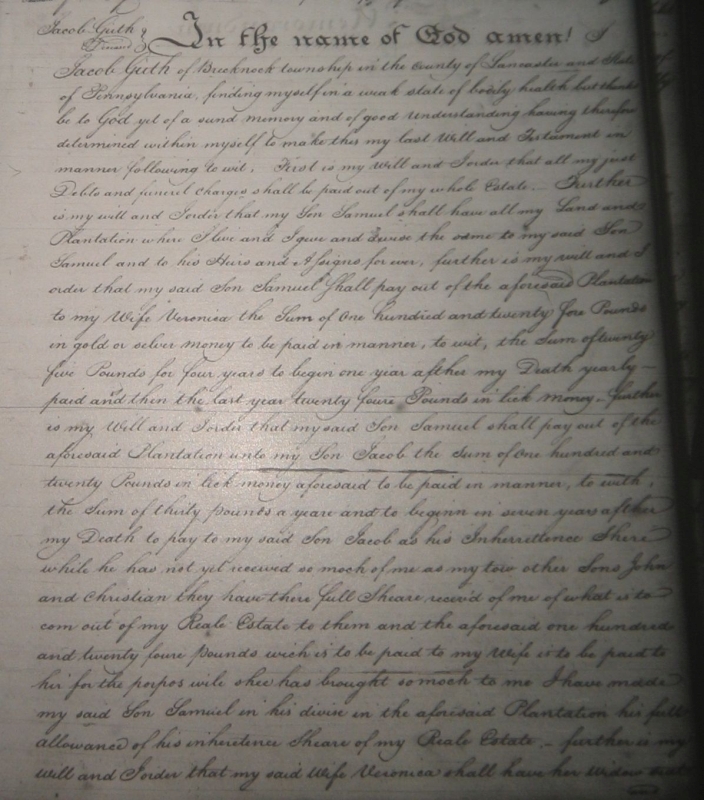 Jacob Guth
In the name of God amen! I
Jacob Guth of Brecknock township in the County of Lancaster and State
of Pennsylvania, finding myself in a weak state of bodely health but thanks
be to God yet of a sund memory and of good understanding having therefore
determined within myself to make this my last Will and Testament in
manner following to wit, First is my Will and I order that all my just
Debts and funeral charges shall be paid out of my whole Estate .. Further
is my will and I order that my Son Samuel shall have all my Land and
Plantation where I live and I give and devise the same to my said Son
Samuel and to his Heirs and Assigns for ever, further is my will and I
order that my said Son Samuel Shall pay out of the aforesaid Plantation
to my Wife Veronica the Sum of One hundred and twenty four Pounds
in gold or selver money to be paid in manner, to wit, the Sum of twenty
five Pounds for four years to begin one year afther my Death yearly -
paid and then the last year twenty foure Pounds in lick money - further
is my Will and I order that my said Son Samuel shall pay out of the
aforesaid Plantation unto my Son Jacob the Sum of One hundred and
twenty Pounds in lick money aforesaid to be paid in manner, to with,
the Sum of thirty pounds a yeare and to beginn in seven years afther
my Death to pay to my said Son Jacob as his Inherrettence Shere
while he has not yet received so moch of me as my tow other Sons John
and Christian they have there full Sheare, receiv'd of me of what is to
com out of my Reale Estate to them and the aforesaid one hundred
and twenty foure pounds wich is to be paid to my Wife is to be paid to
hir for the porpos wile shee has brought so moch to me I have made
my said Son Samuel in his divise in the aforesaid Plantation his full
allowance of his inheritence Sheare of my Reale Estate .. further is my
Will and I order that my said Wife Veronica shall have her Widow